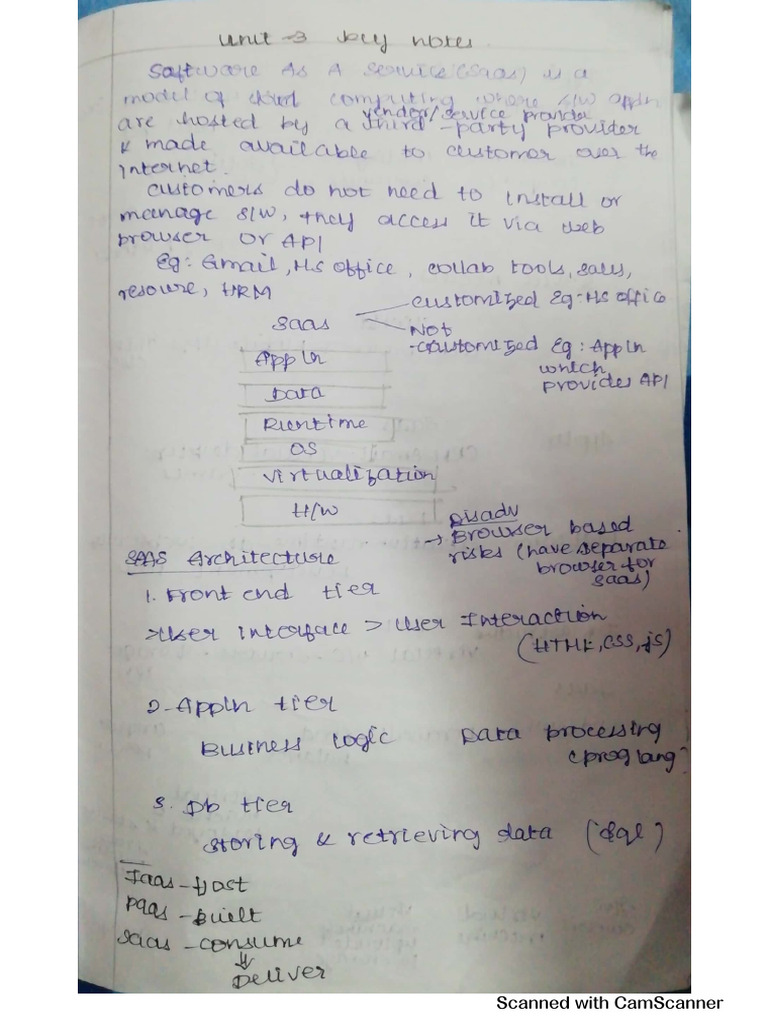 Unit-3 key notes.
Software As A Service (Saas) is a
model of cloud computing where s/w appln
vendor/service provider
are hosted by a third-party provider
& made available to customer over the
internet.
customers do not need to install or
manage s/w, they access it via web
browser or API
Eg: Gmail, MS office, collab tools, sales,
resoure, HRM
customized Eg:-MS office
Saas
Not
-customized Eg: Appln
which
provides API
Appln
Data
Runtime
OS
virtualization
H/w
Disadv
→ Browser based
risks (have separate
browser for
saas)
SAAS Architecture
1. Front end tier
>User interface > User Interaction
(HTML, CSS, js)
2-Appln tier
Business logic Data processing
(prog lang)
3. Db tier
storing & retrieving data (sql)
Iaas-Host
Paas-built
saas-consume
⇓
Deliver
Scanned with CamScanner